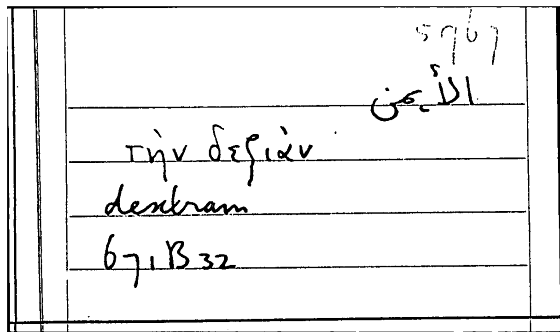 5967
الأيمن
τὴν δεξιὰν
dextram
671B32